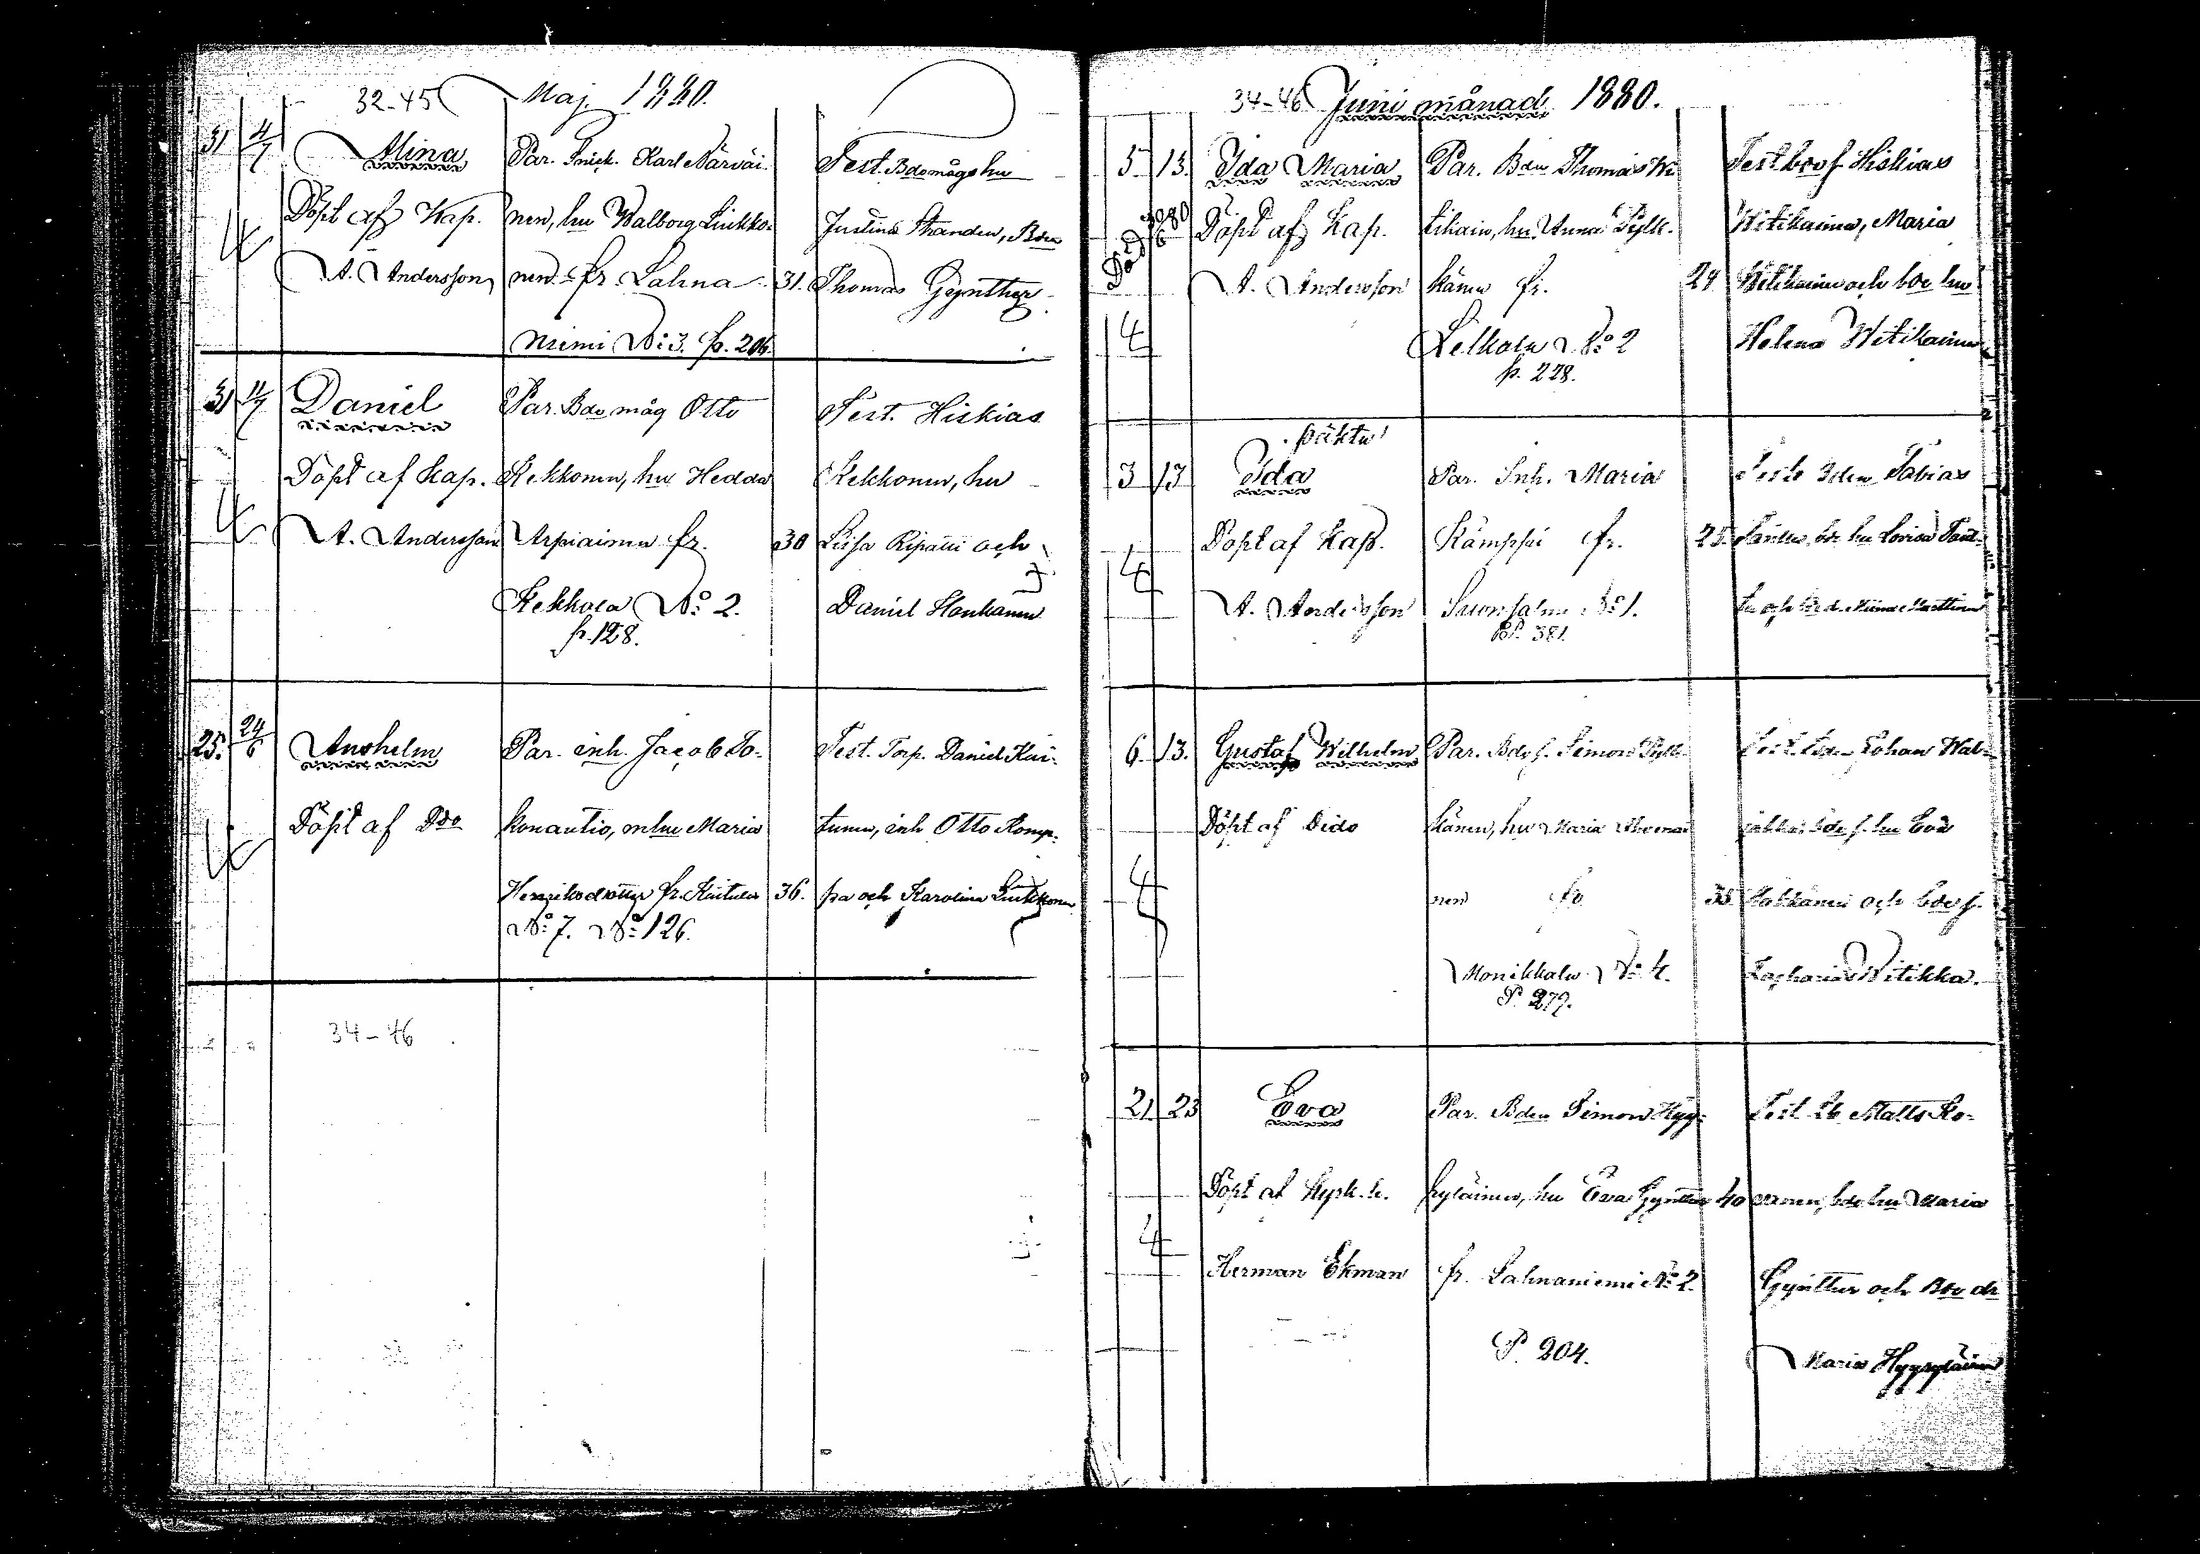 32-45 Maj. 1880.
31 4/7 Mina Par. Snick. Karl Närväi- Test. Bdemågs hu
Döpt af Kap. nen, hu Walborg Liukko- Justina Stranden, Bden
A. Andersson nen fr Lahna- 31. Thomas Gÿnther
niemi No: 3. p. 206.
31 4/7 Daniel Par. Bde måg Otto Test. Hiskias
Döpt af Kap. Kekkonen, hu Hedda Kekkonen, hu
A. Andersson Arpiainen fr. 30 Liisa Ripatti och
Kekkola No: 2. Daniel Honkanen
p. 128.
25. 24/6 Anshelm Par. inh. Jacob To- Test. Torp. Daniel Kii-
Döpt af Ddo konautio, m hu Maria tunen, inh Otto Komp-
Henriksdotter fr. Kiitula 36. pa och Karolina Liukkonen
No: 7. No: 126.
34-46
34-46 Juni månad 1880.
5 13. Ida Maria Par. Bden Thomas Wi- Test. bdes f. Hiskias
Döpt af Kap. tikain, hu Anna Pylk- Witikainen, Maria
Död
A. Andersson känen fr. 24 Witikainen och bde hu
4 No: 2 Helena Witikainen
p. 228.
päktu
3 13 Ida Par. Inh. Maria Test. Bden Tobias
Döpt af Kap. Kämppi fr. 25. bde hu Lovisa
A. Andersson Suonsalmi No: 1. och
P. 381.
6. 13. Gustaf Wilhelm Par. Bdes f. Simon Pylk- Test. Bden Johan
Döpt af Dido känen, hu Maria bdes f. hu Eva
4 nen fr 35 och bdes f.
Monikkala No: 4. Zacharias Witikka.
P. 279.
21 23 Eva Par. Bden Simon Hyy- Test. Matts Ko-
Döpt af Kyrk. h. ryläinen, hu Eva Gynther 40 bde hu Maria
4 Herman Ekman fr. Lahnaniemi No: 2. Gynther och Bde dr
P. 204. Maria Hyyryläinen